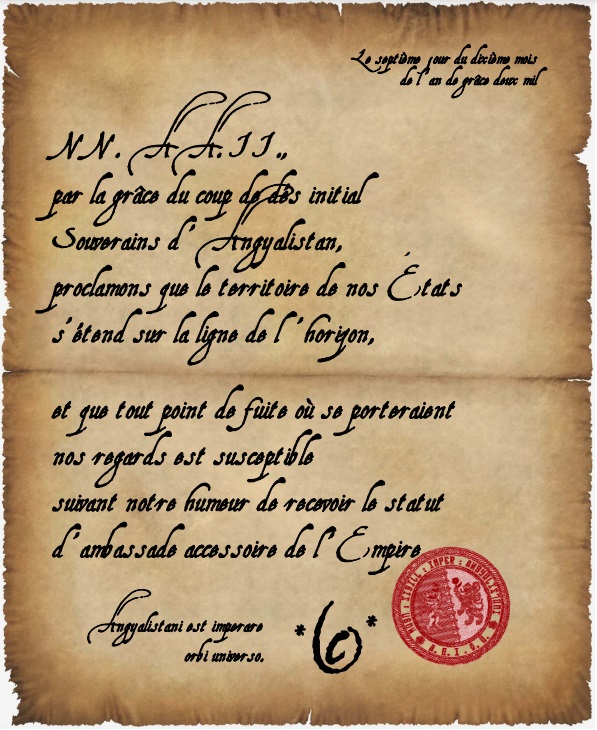 Le septième jour du dixième mois
de l'an de grâce deux mil
NN. AA.II.,
par la grâce du coup de dés initial
Souverains d'Angyalistan,
proclamons que le territoire de nos États
s'étend sur la ligne de l'horizon,
et que tout point de fuite où se porteraient
nos regards est susceptible
suivant notre humeur de recevoir le statut
d'ambassade accessoire de l'Empire
Angyalistani est imperare
orbi universo.